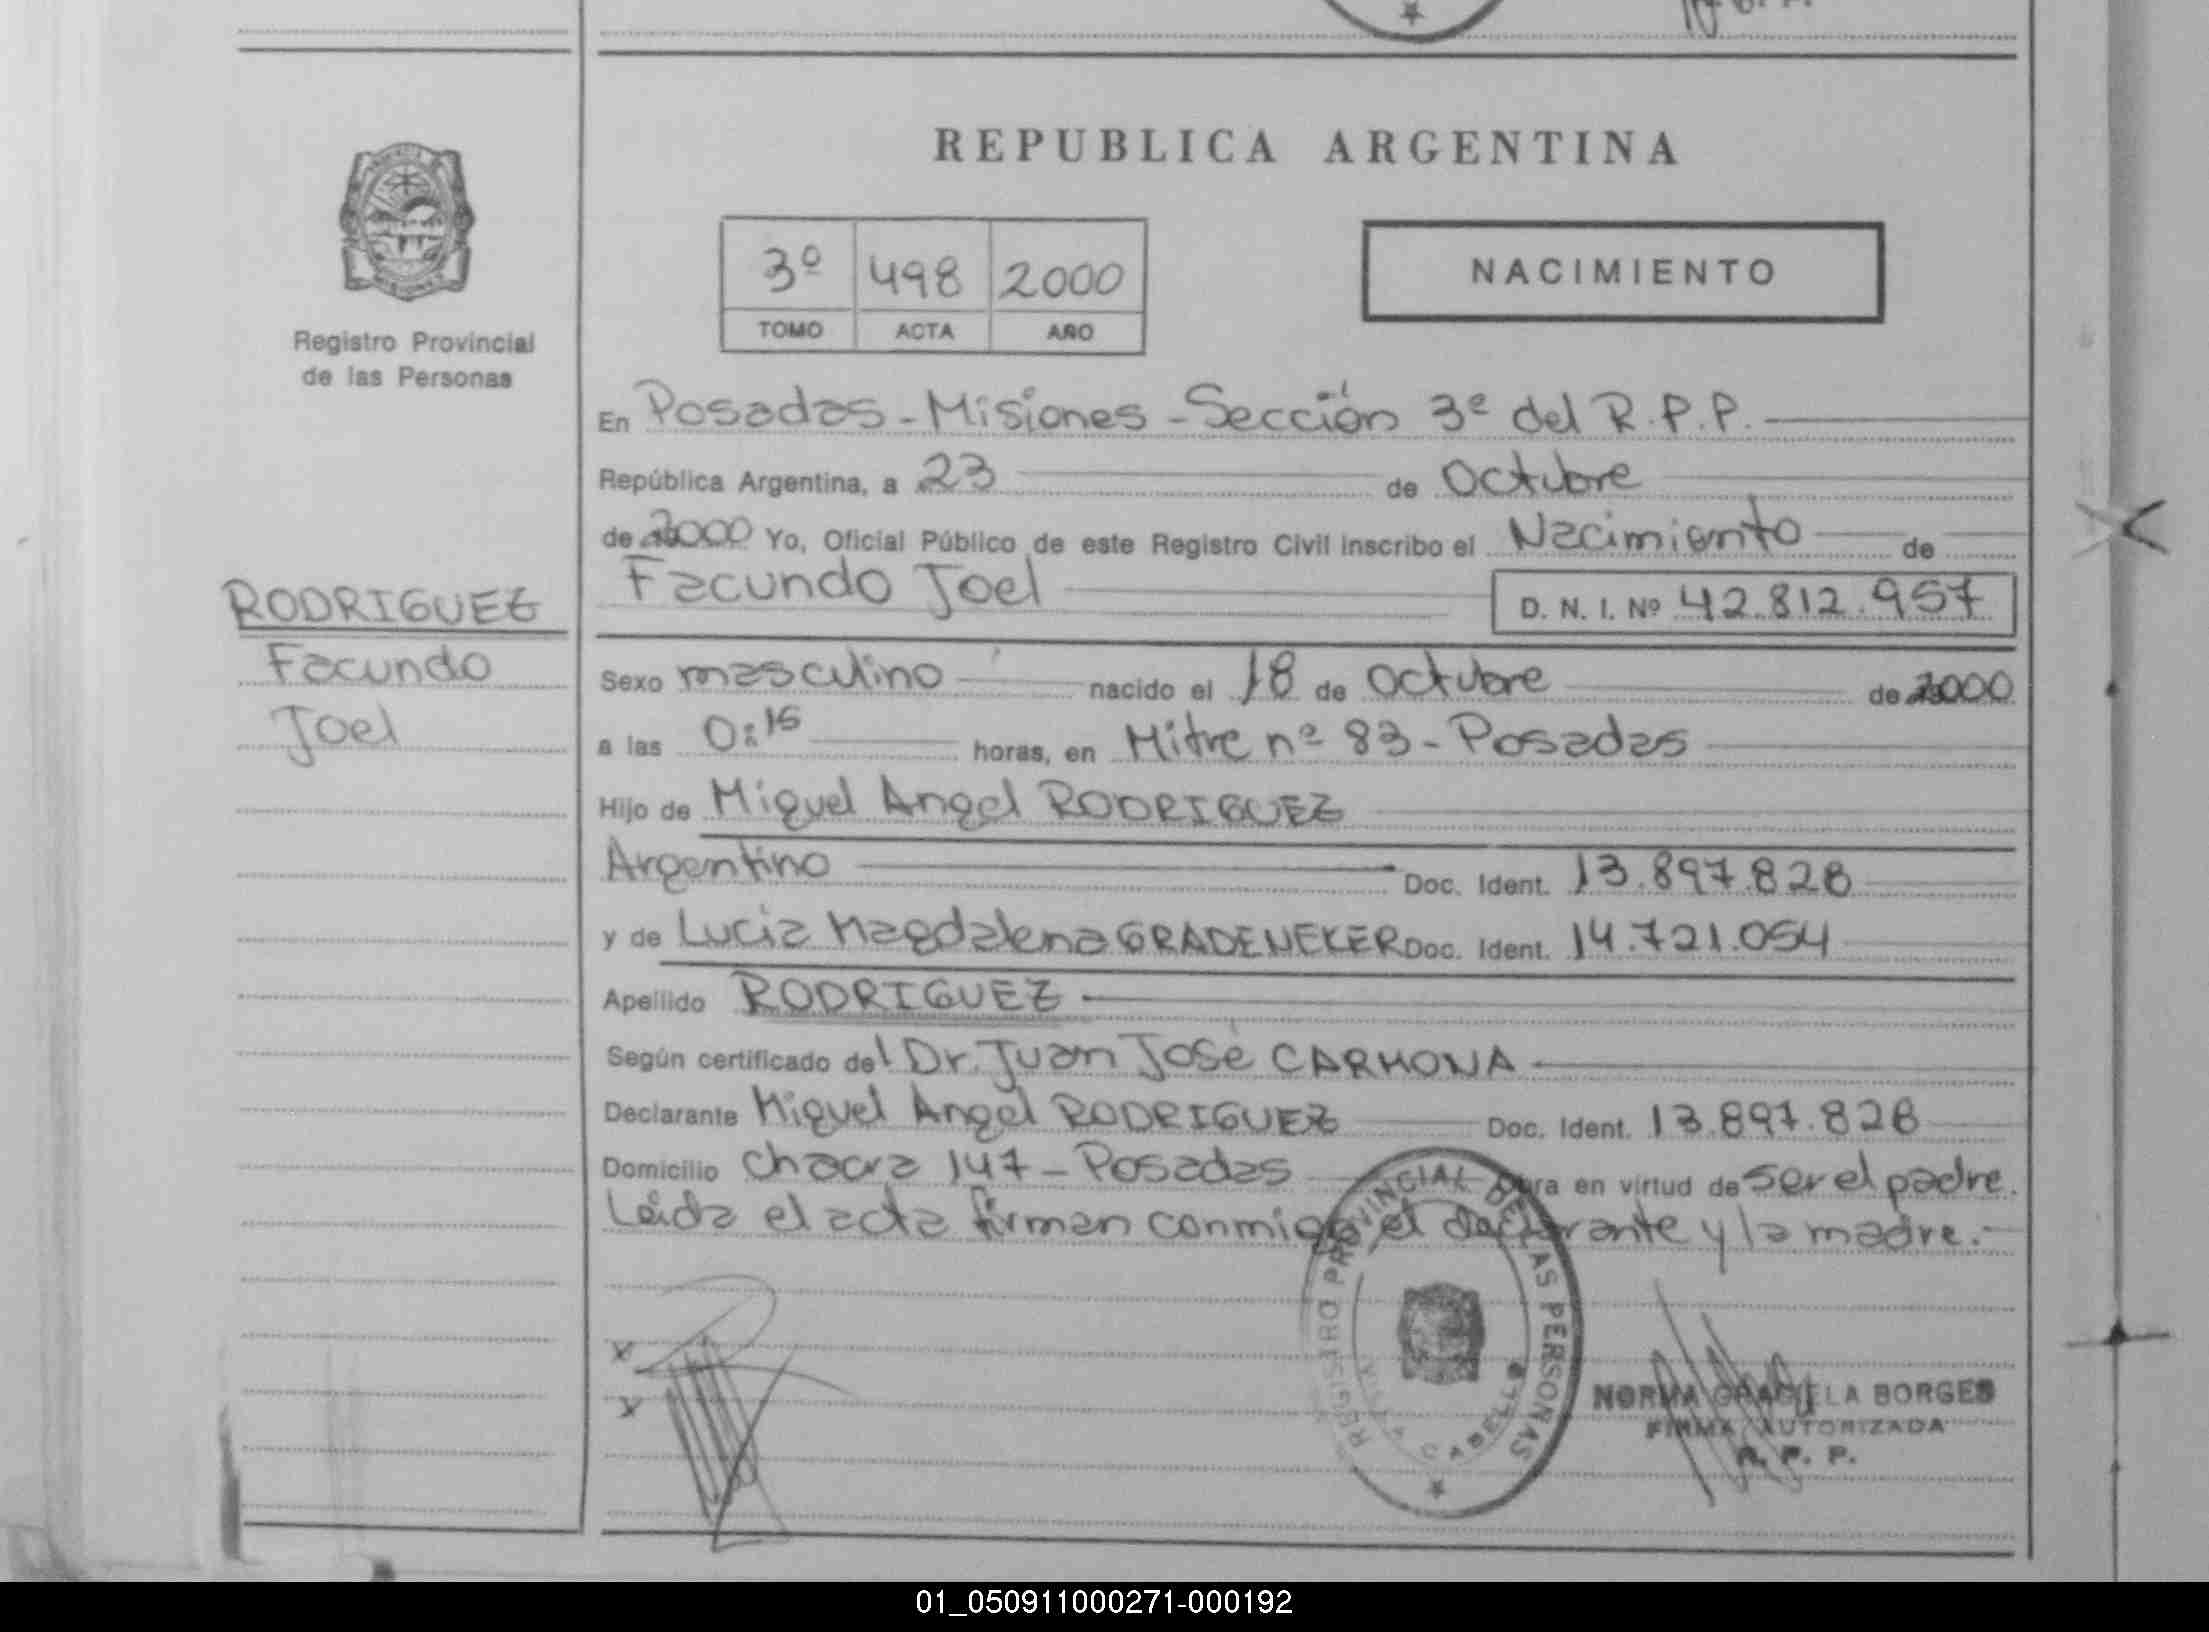 REPUBLICA ARGENTINA
3º 498 2000
TOMO ACTA AÑO
NACIMIENTO
Registro Provincial
de las Personas
En Posadas - Misiones - Sección 3ª del R.P.P.
República Argentina, a 23 de Octubre
de 2000 Yo, Oficial Público de este Registro Civil inscribo el Nacimiento de
Facundo Joel D. N. I. Nº 42.812.957
RODRIGUEZ
Facundo
Joel
Sexo masculino nacido el 18 de Octubre de 2000
a las 0:15 horas, en Mitre nº 83 - Posadas
Hijo de Miguel Angel RODRIGUEZ
Argentino Doc. Ident. 13.897.828
y de Lucia Magdalena GRADENEKER Doc. Ident. 14.721.054
Apellido RODRIGUEZ
Según certificado del Dr. Juan José CARMONA
Declarante Miguel Angel RODRIGUEZ Doc. Ident. 13.897.828
Domicilio chacra 147 - Posadas en virtud de ser el padre.
Leida el acta firman conmigo, el declarante y la madre.-
x
x
REGISTRO PROVINCIAL DE LAS PERSONAS
CABELLO
NORMA GRACIELA BORGES
FIRMA AUTORIZADA
R. P. P.
01_050911000271-000192